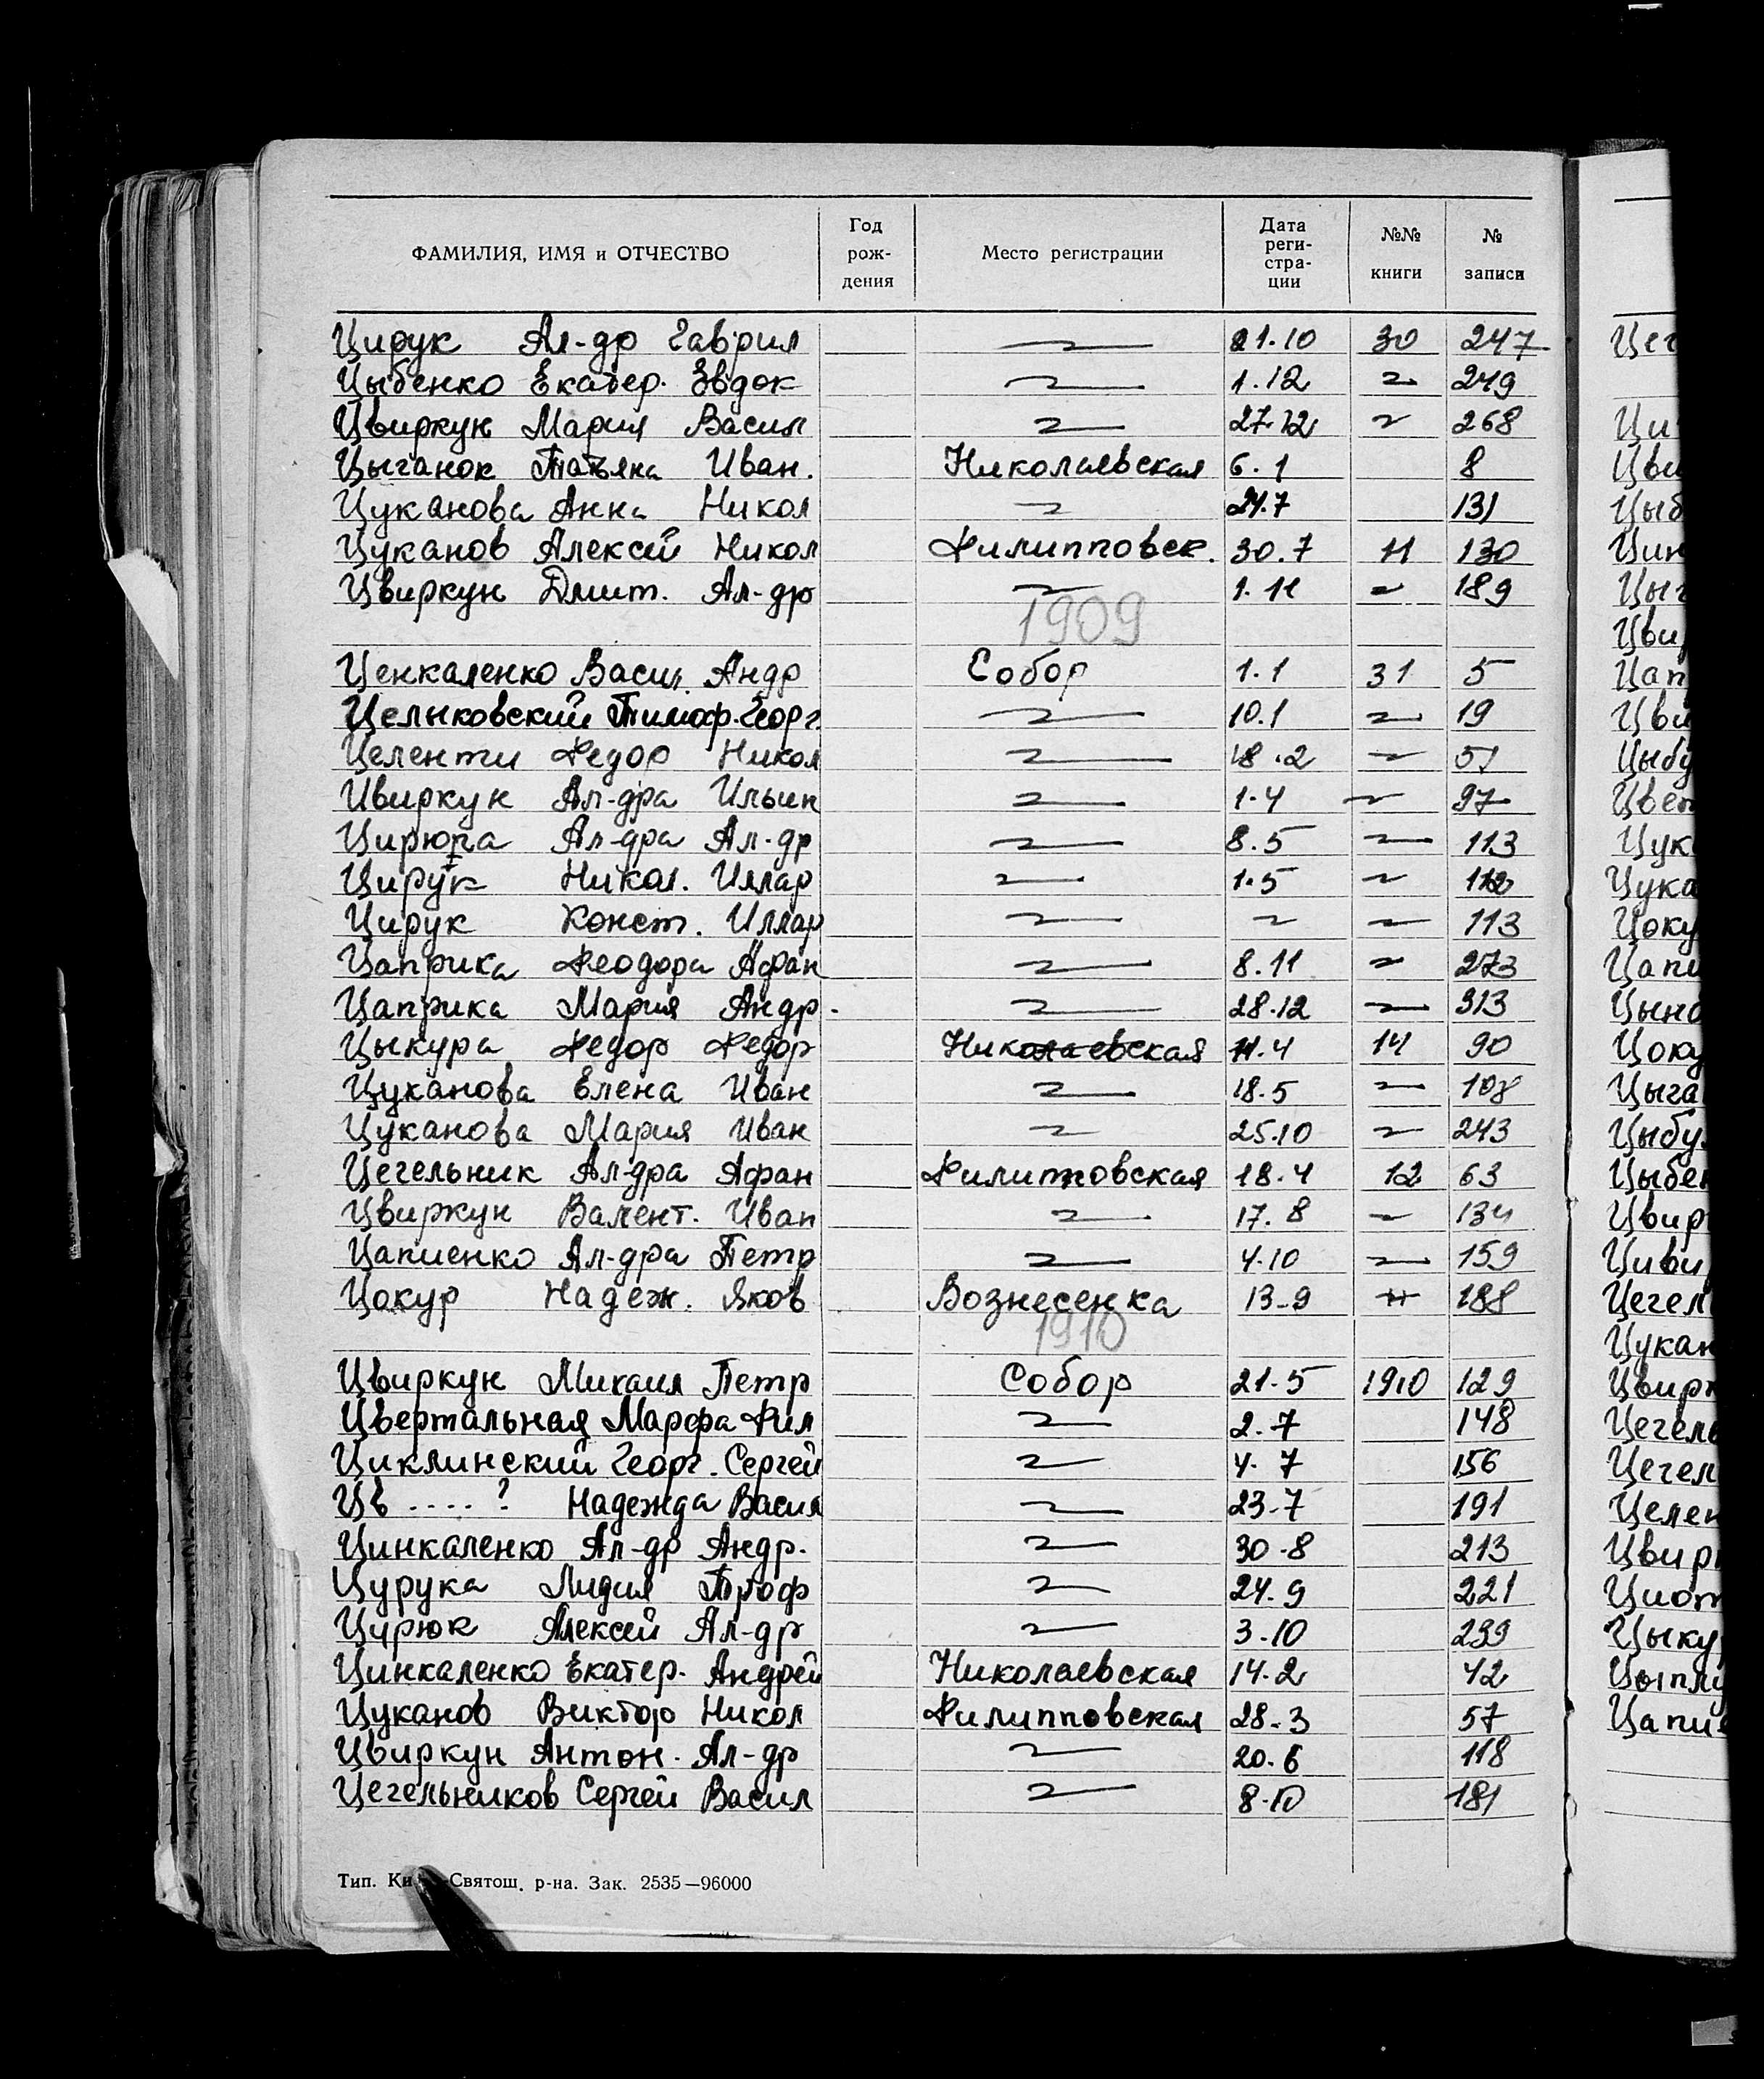 ФАМИЛИЯ, ИМЯ и ОТЧЕСТВО Год рождения Место регистрации Дата регистрации №№ книги № записи
Цирук Ал-др Гаврил 21.10 30 247
Цыбенко Екатер. Евдок 1.12 249
Цвиркун Мария Васил 27.12 268
Цыганок Татьяна Иван. Николаевская 6.1 8
Цуканова Анна Никол 24.7 131
Цуканов Алексей Никол Филипповск. 30.7 11 130
Цвиркун Дмит. Ал-др 1.11 189
1909
Ценкаленко Васил. Андр Собор 1.1 31 5
Целыковский Тимоф. Георг. 10.1 19
Целенти Федор Никол 18.2 51
Цвиркун Ал-дра Ильин 1.4 97
Цирюпа Ал-дра Ал-др 8.5 113
Цирук Никол. Иллар 1.5 112
Цирук Конст. Иллар 113
Цаприка Феодора Афан 8.11 273
Цаприка Мария Андр. 28.12 313
Цыкура Федор Федор Николаевская 11.4 14 90
Цуканова Елена Иван 18.5 108
Цуканова Мария Иван 25.10 243
Цегельник Ал-дра Афан Филипповская 18.4 12 63
Цвиркун Валент. Иван 17.8 134
Цапиенко Ал-дра Петр 4.10 159
Цокур Надеж. Яков Вознесенка 13-9 188
1910
Цвиркун Михаил Петр Собор 21-5 1910 129
Цвертальная Марфа Фил 2.7 148
Циклинский Георг. Сергей 4.7 156
Цв ....? Надежда Васил 23-7 191
Цинкаленко Ал-др Андр. 30-8 213
Цурука Лидия Троф 24.9 221
Цирюк Алексей Ал-др 3-10 239
Цинкаленко Екатер. Андрей Николаевская 14.2 42
Цуканов Виктор Никол Филипповская 28-3 57
Цвиркун Антон. Ал-др 20.6 118
Цегельников Сергей Васил 8-10 181
Тип. Ки Святош. р-на. Зак. 2535—96000